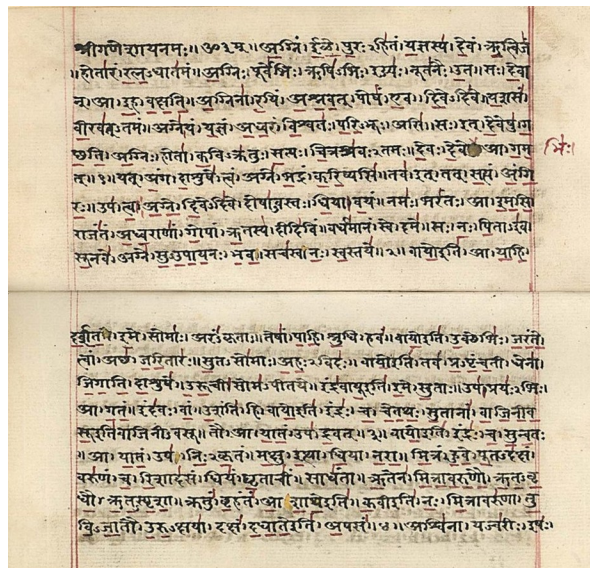 श्रीगणेशायनमः॥ॐ३म्॥अग्निं।ईळे।पुरःऽहितं।यज्ञस्य।देवं।ऋत्विजं
॥होतारं।रत्नऽधातमं॥अग्निः।पूर्वेभिः।ऋषिऽभिः।ईड्यः।नूतनैः।उत॥सः।देवा
न्।आ।इह।वक्षति॥अग्निना।रयिं।अश्नवत्।पोषं।एव।दिवेऽदिवे॥यशसं
वीरवत्ऽतमं॥अग्ने।यं।यज्ञं।अध्वरं।विश्वतः।परिऽभूः।असि॥सः।इत्।देवेषु।ग
छति॥अग्निः।होता।कविऽक्रतुः।सत्यः।चित्रश्रवःऽतमः॥देवः।देवे।आ।गम
भिः।
त्॥१॥यत्।अंग।दाशुषे।त्वं।अग्ने।भद्रं।करिष्यसि॥तव।इत्।तत्।सत्यं।अंगि
रः॥उप।त्वा।अग्ने।दिवेऽदिवे।दोषाऽवस्तः।धिया।वयं॥नमः।भरंतः।आ।इमसि॥
राजंतं।अध्वराणां।गोपां।ऋतस्य।दीदिविं॥वर्धमानं।स्वे।दमे॥सः।नः।पिताऽइव।
सूनवे।अग्ने।सुऽउपायनः।भव॥सचस्व।नः।स्वस्तये॥२॥वायोइति।आ।याहि।
दर्शत।इमे।सोमाः।अरंऽकृताः॥तेषां।पाहि।श्रुधि।हवं॥वायोइति।उक्थेभिः।जरंते।
त्वां।अछ।जरितारः॥सुतऽसोमाः।अहःऽविदः॥वायोइति।तव।प्रऽपृंचती।धेना।
जिगाति।दाशुषे॥उरूची।सोमऽपीतये॥इंद्रवायूइति।इमे।सुताः।उप।प्रयःऽभिः।
आ।गतं॥इंदवः।वां।उशंति।हि॥वायोइति।इंद्रः।च।चेतथः।सुतानां।वाजिनीव
सूइतिवाजिनीऽवसू॥तौ।आ।यातं।उप।द्रवत्॥३॥वायोइति।इंद्रः।च।सुन्वतः
॥आ।यातं।उप।निःऽकृतं॥मक्षु।इत्था।धिया।नरा॥मित्रं।हुवे।पूतऽदक्षं।
वरुणं।च।रिशादसं॥धियं।घृताचीं।साधंता॥ऋतेन।मित्रावरुणौ।ऋतऽवृ
धौ।ऋतऽस्पृशा॥क्रतुं।बृहंतं।आशाथेइति॥कवीइति।नः।मित्रावरुणा।तु
विऽजातौ।उरुऽक्षया॥दक्षं।दधातेइति।अपसं॥४॥अश्विना।यज्वरीः।इषः।